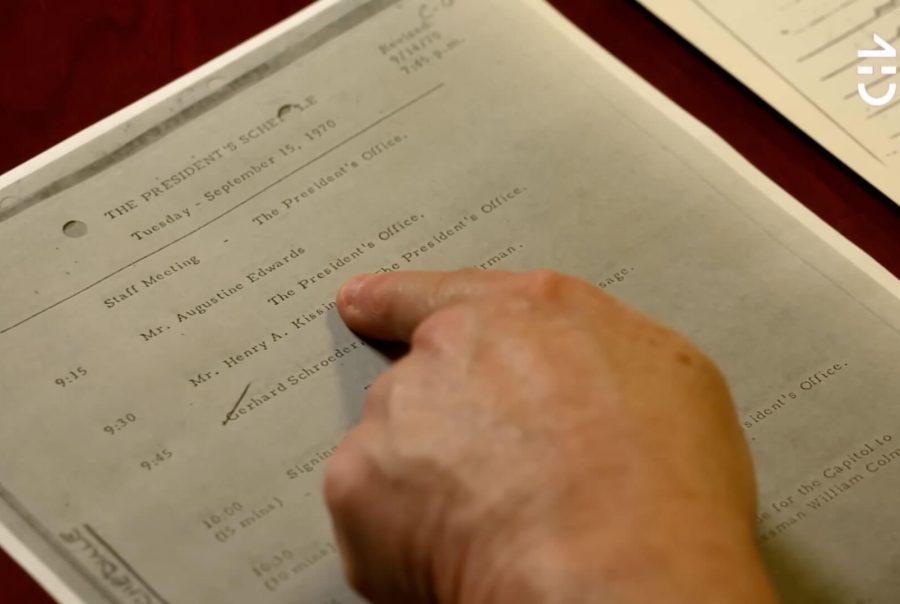 Revised
9/14/70
7:45 p.m.
THE PRESIDENT'S SCHEDULE
Tuesday - September 15, 1970
Staff Meeting - The President's Office.
9:15 Mr. Augustine Edwards
The President's Office.
9:30 Mr. Henry A. Kissin The President's Office.
9:45 Gerhard Schroeder, rman.
sage.
10:00 Signing
(15 mins) sident's Office.
10:30
(30 mins) e for the Capitol to
William Colm
SCHEDULE